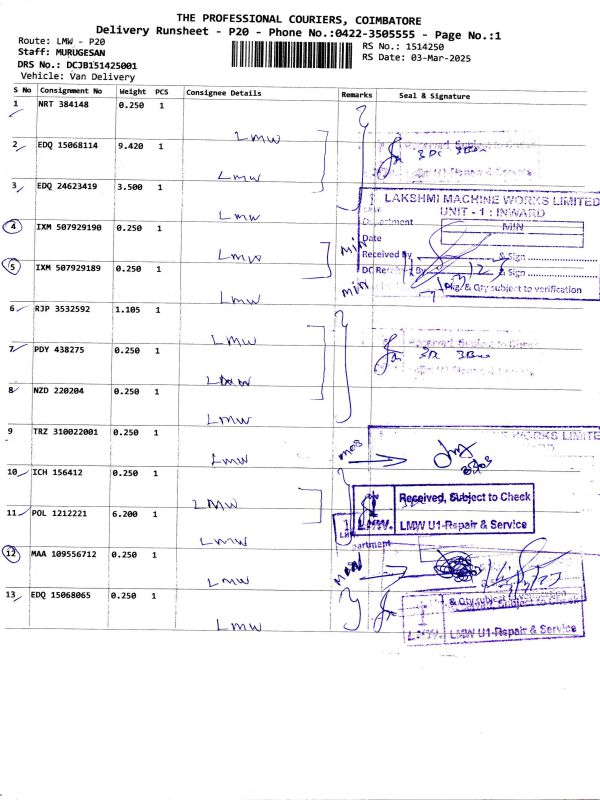 THE PROFESSIONAL COURIERS, COIMBATORE
Delivery Runsheet - P20 - Phone No.:0422-3505555 - Page No.:1
Route: LMW - P20
RS No.: 1514250
Staff: MURUGESAN
RS Date: 03-Mar-2025
DRS No.: DCJB151425001
Vehicle: Van Delivery
S No Consignment No Weight PCS Consignee Details Remarks Seal & Signature
1 NRT 384148 0.250 1
LMW
2 EDQ 15068114 9.420 1
Received, Subject to
U1-Repair & Service
LMW
3 EDQ 24623419 3.500 1
LMW
LAKSHMI MACHINE WORKS LIMITED
UNIT - 1 : INWARD
Department MIN
4 IXM 507929190 0.250 1
Date
LMW
MIN
Received By & Sign
5 IXM 507929189 0.250 1
DC Received By & Sign
Pkg/ & Qty subject to verification
LMW
MIN
6 RJP 3532592 1.105 1
LMW
7 PDY 438275 0.250 1
LMW
8 NZD 220204 0.250 1
LMW
9 TRZ 310022001 0.250 1
WORKS LIMITE
LMW
MOS
10 ICH 156412 0.250 1
LMW
Received, Subject to Check
LMW. LMW U1-Repair & Service
11 POL 1212221 6.200 1
LMW
partment
12 MAA 109556712 0.250 1
LMW
13 EDQ 15068065 0.250 1
& Qty subject
Subject to Check
LMW. LMW U1-Repair & Service
LMW